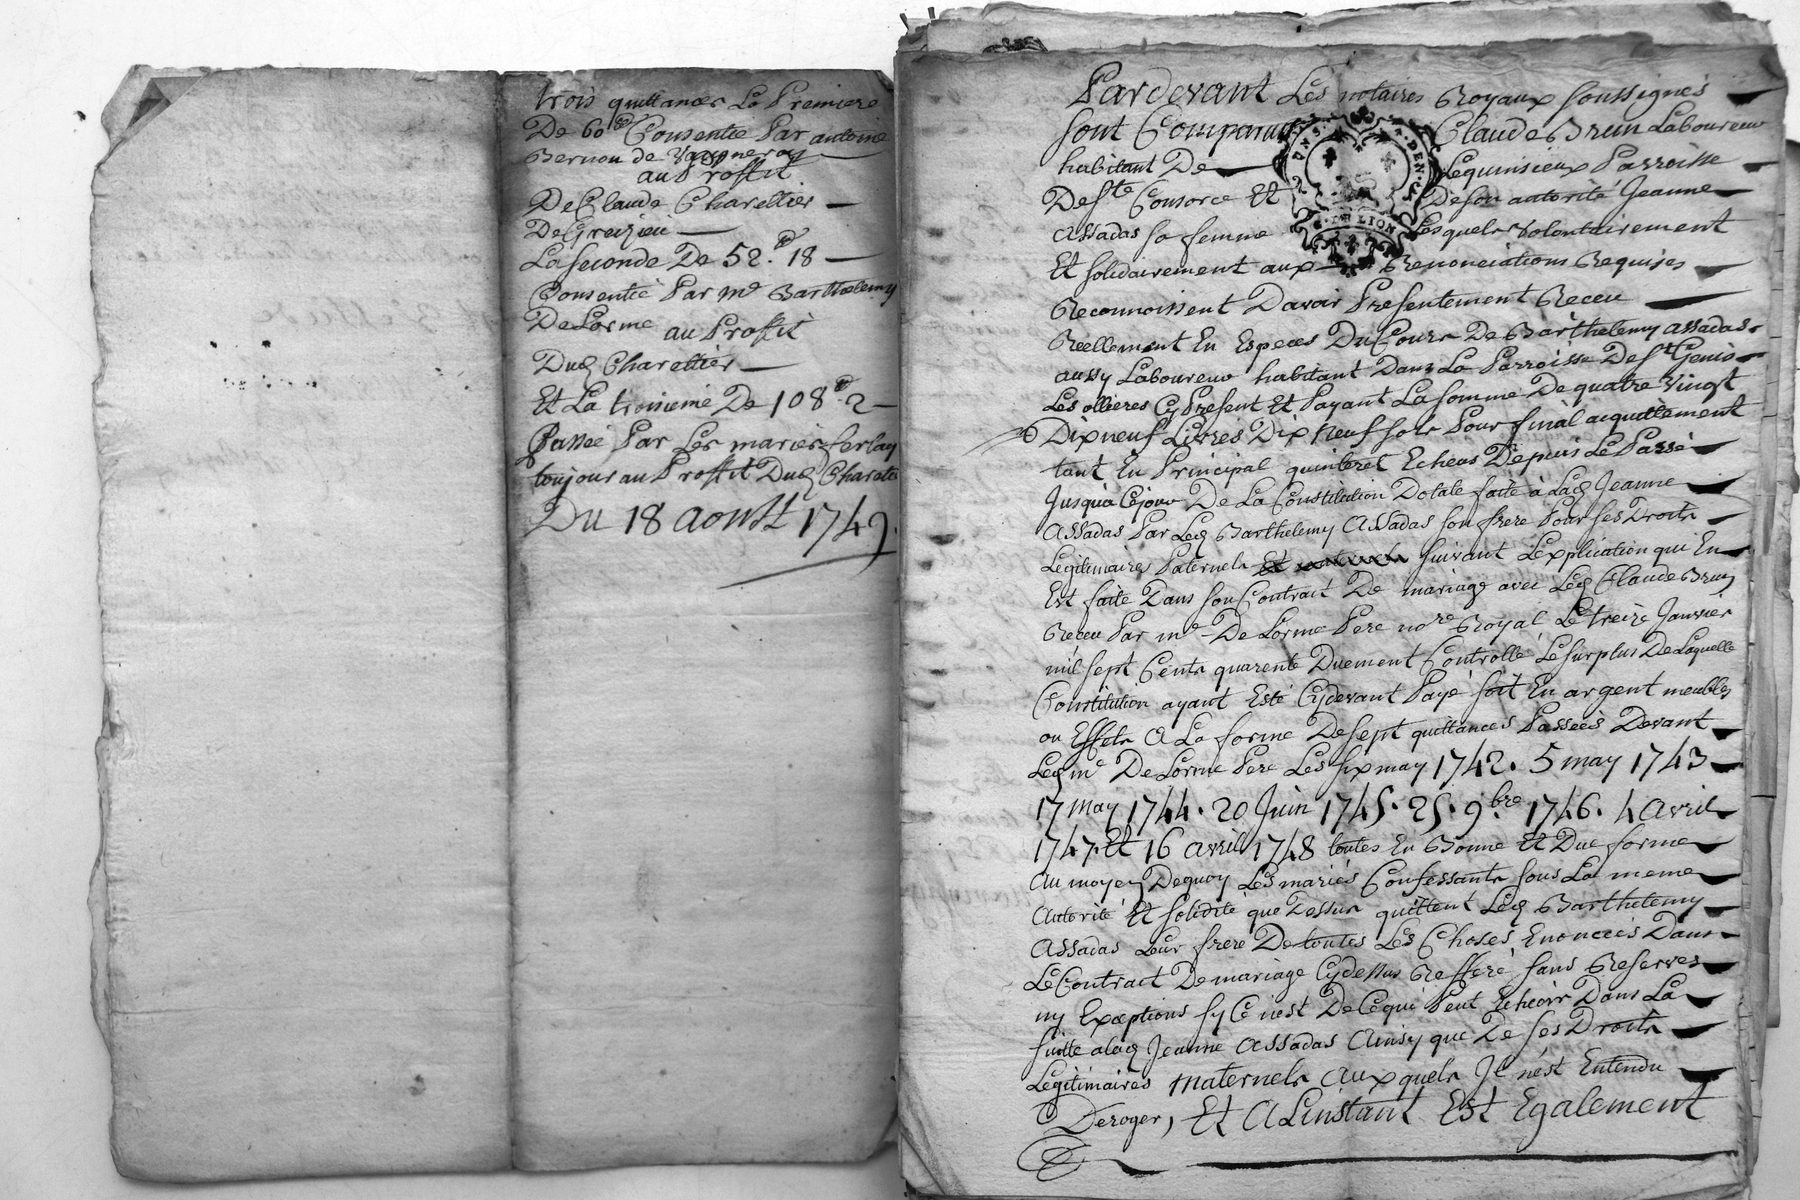 trois quittances La Premiere
De 60ᵗᵗ Consentie Par antoine
Bernon de Vaugneray
au Proffit
De Claude Charettier
De Greizieu
La seconde De 52.ᵗᵗ 18
Consentie Par mᵉ Barthelemy
DeLorme au Proffit
Dud Charettier
Et La troisieme De 108ᵗᵗ 2
Passée Par Les mariés ferlay
toujour au Proffit Dud Charett
Du 18 aoustt 1749.
Pardevant Les notaires Royaux soussignés
sont Comparus Claude Brun Laboureur
habitant De Lequinsieux Parroisse
De Ste Consorce Et De son autorité Jeanne
Assadas sa femme Lesquels volontairement
Et solidairement aux Renonciations Requises
Reconnoissent Davoir Presentement Receu
Reellement En Especes Du Cours De Barthelemy assadas
aussy Laboureur habitant Dans La Parroisse De St Genis
Les ollieres Cy Present Et Payant La somme De quatre vingt
Dix neuf Livres Dix Neuf sols Pour final acquittement
tant En Principal quinteret Echeus Depuis Le Passé
Jusqua Cejour De La Constitution Dotale faite à Lad Jeanne
Assadas Par Led Barthelemy Assadas son frere Pour ses Droits
Legitimaires Paternels suivant Lexplication qui En
Est faite Dans son Contrat De mariage avec Led Claude Brun
Receu Par mᵉ DeLorme Pere noʳᵉ Royal Le treize Janvier
mil sept Cents quarente Duement Controllé Le surplus De Laquelle
Constitution ayant Esté Cydevant Payé soit En argent meubles
ou Effets A La forme De sept quittances Passées Devant
Led mᵉ DeLorme Pere Les six may 1742. 5 may 1743
17 may 1744. 20 Juin 1745. 25. 9.bre 1746. 4 avril
1747. Et 16 avril 1748 toutes En Bonne Et Due forme
Au moyen Dequoy Les mariés Confessants sous La meme
Autorité Et solidité que Dessus quittent Led Barthelemy
Assadas Leur frere De toutes Les Choses Enoncées Dans
Le Contract De mariage Cydessus Refferé sans Reserves
ny Exceptions sy Ce n'est De Cequi Peut Echeoir Dans La
suitte alad Jeanne Assadas Ainsy que De ses Droits
Legitimaires maternels Auxquels Il n'est Entendu
Deroger, Et A Linstant Est Egalement